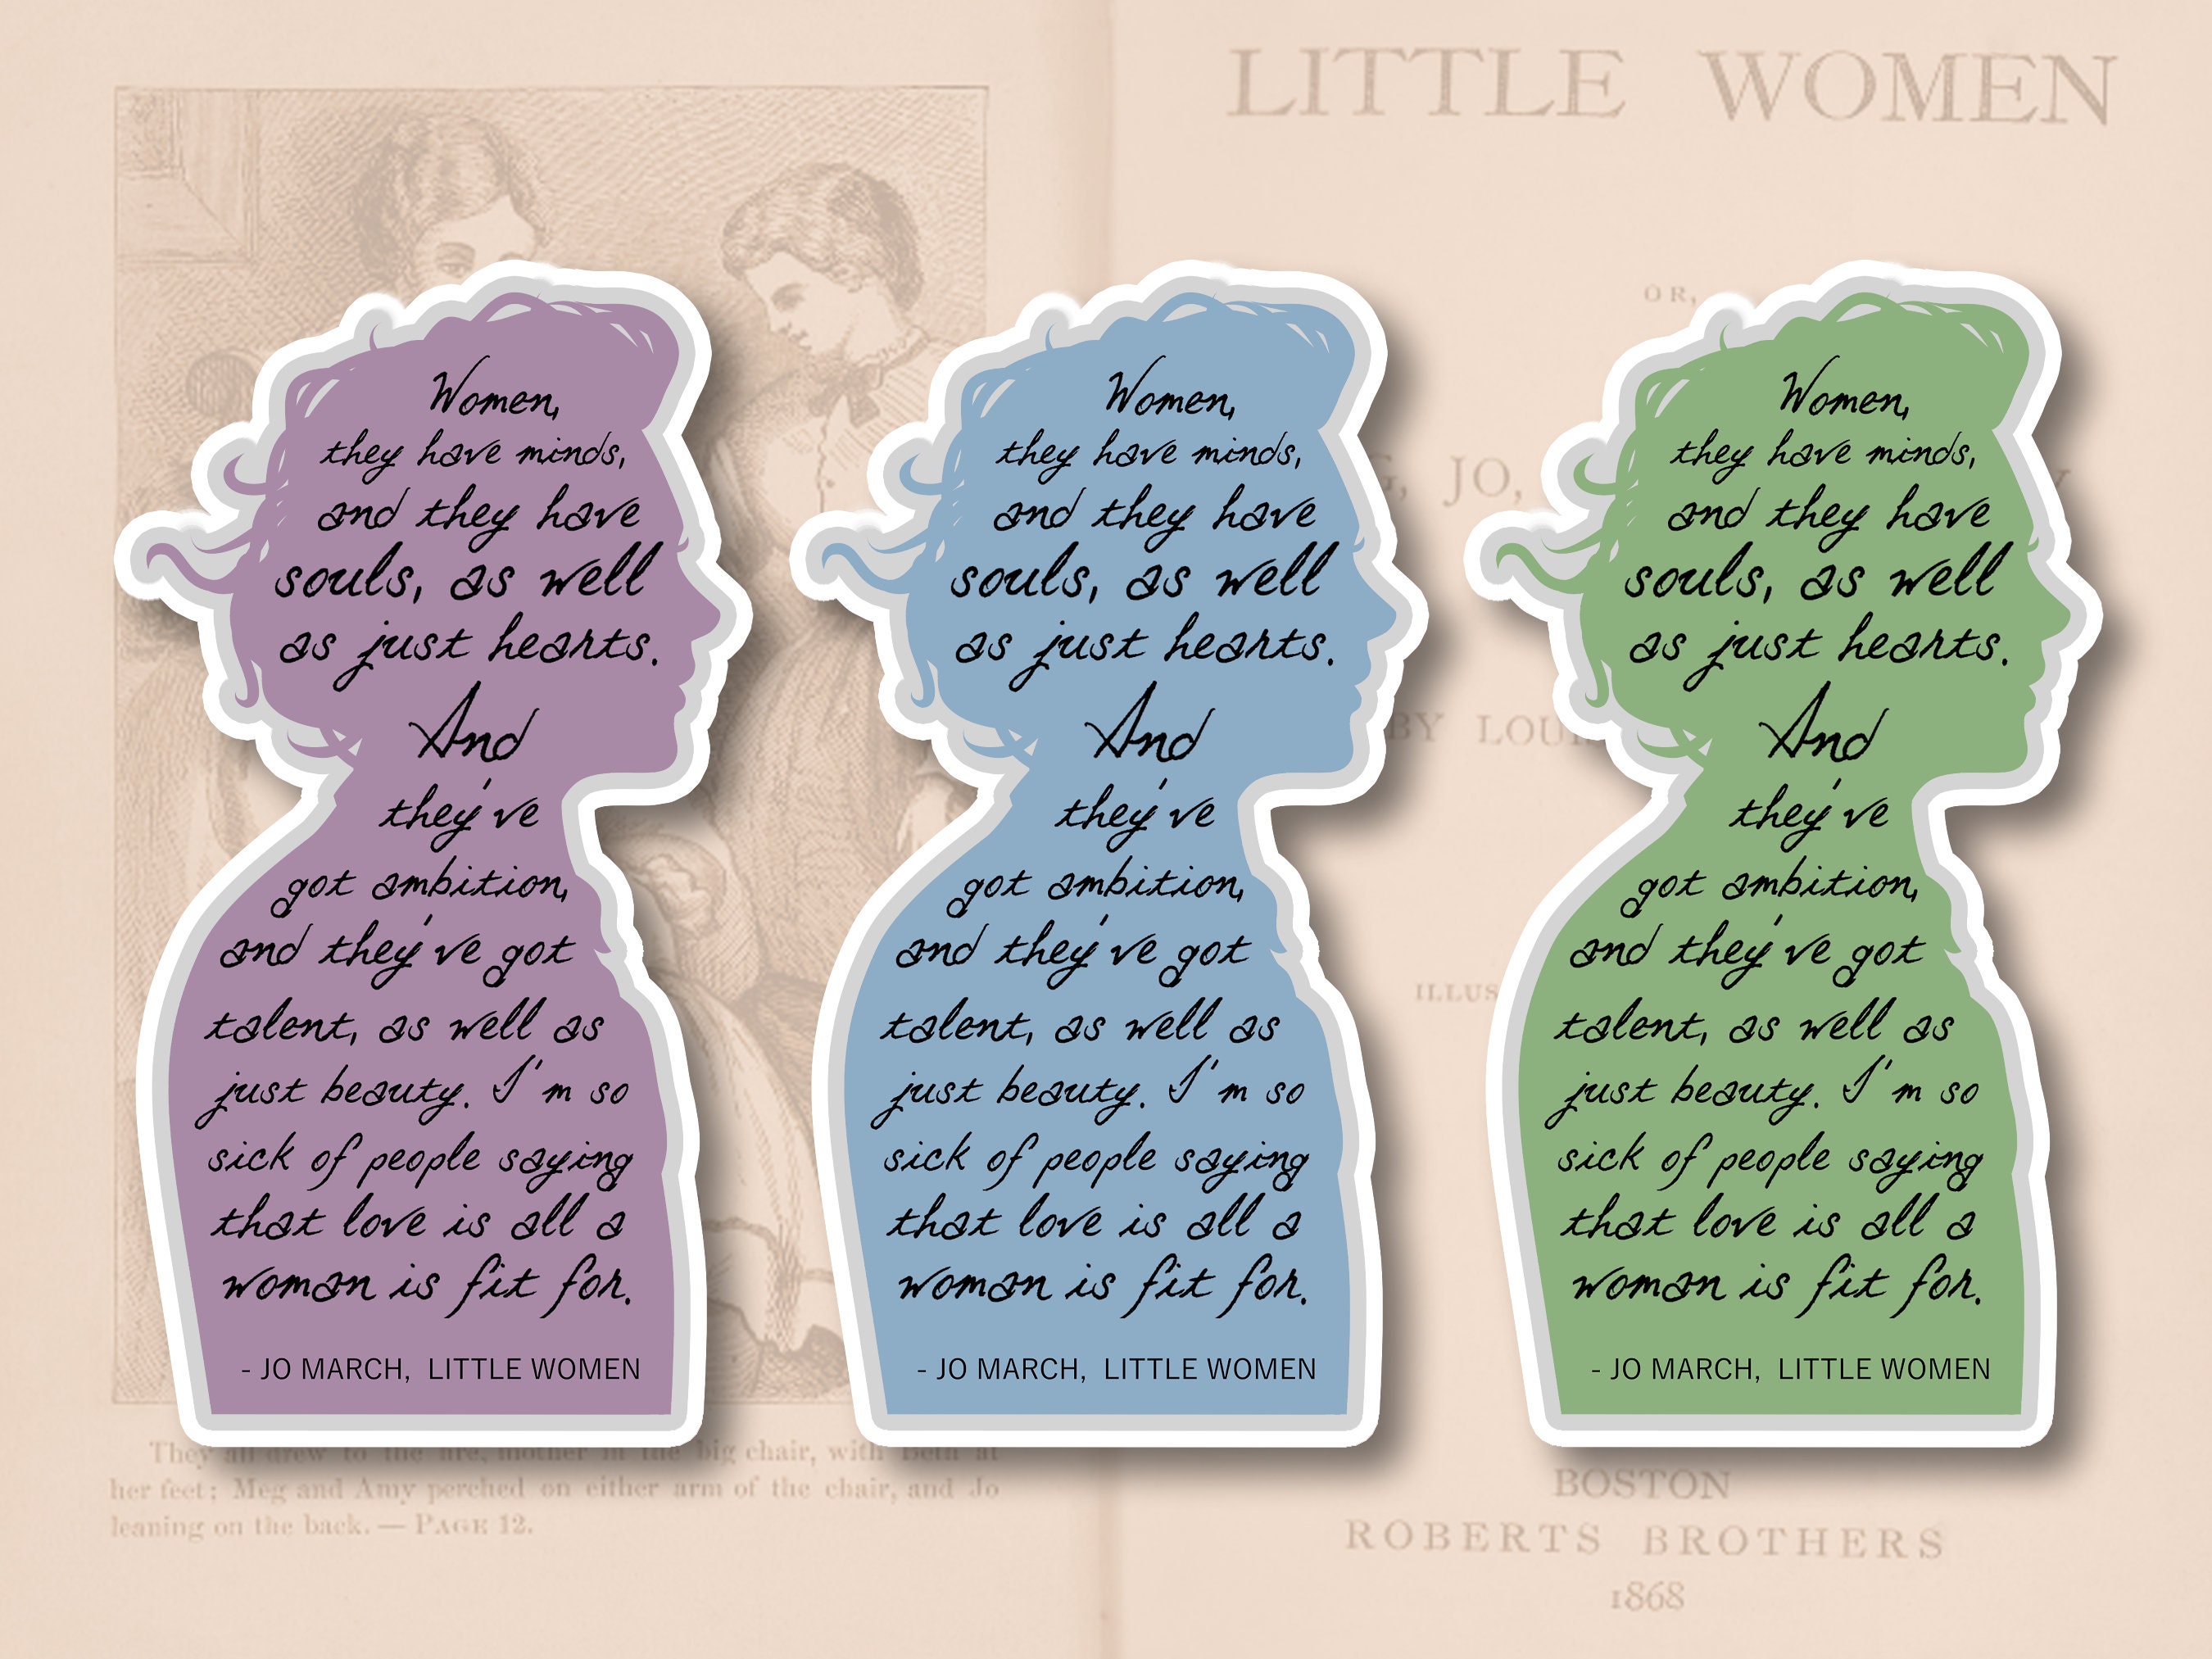 LITTLE WOMEN
OR,
JO,
BY
ILLUS
BOSTON
ROBERTS BROTHERS
1868
They all drew to the fire, mother in the big chair, with Beth at
her feet; Meg and Amy perched on either arm of the chair, and Jo
leaning on the back. — PAGE 12.
Women,
they have minds,
and they have
souls, as well
as just hearts.
And
they've
got ambition,
and they've got
talent, as well as
just beauty. I'm so
sick of people saying
that love is all a
woman is fit for.
- JO MARCH, LITTLE WOMEN
Women,
they have minds,
and they have
souls, as well
as just hearts.
And
they've
got ambition,
and they've got
talent, as well as
just beauty. I'm so
sick of people saying
that love is all a
woman is fit for.
- JO MARCH, LITTLE WOMEN
Women,
they have minds,
and they have
souls, as well
as just hearts.
And
they've
got ambition,
and they've got
talent, as well as
just beauty. I'm so
sick of people saying
that love is all a
woman is fit for.
- JO MARCH, LITTLE WOMEN